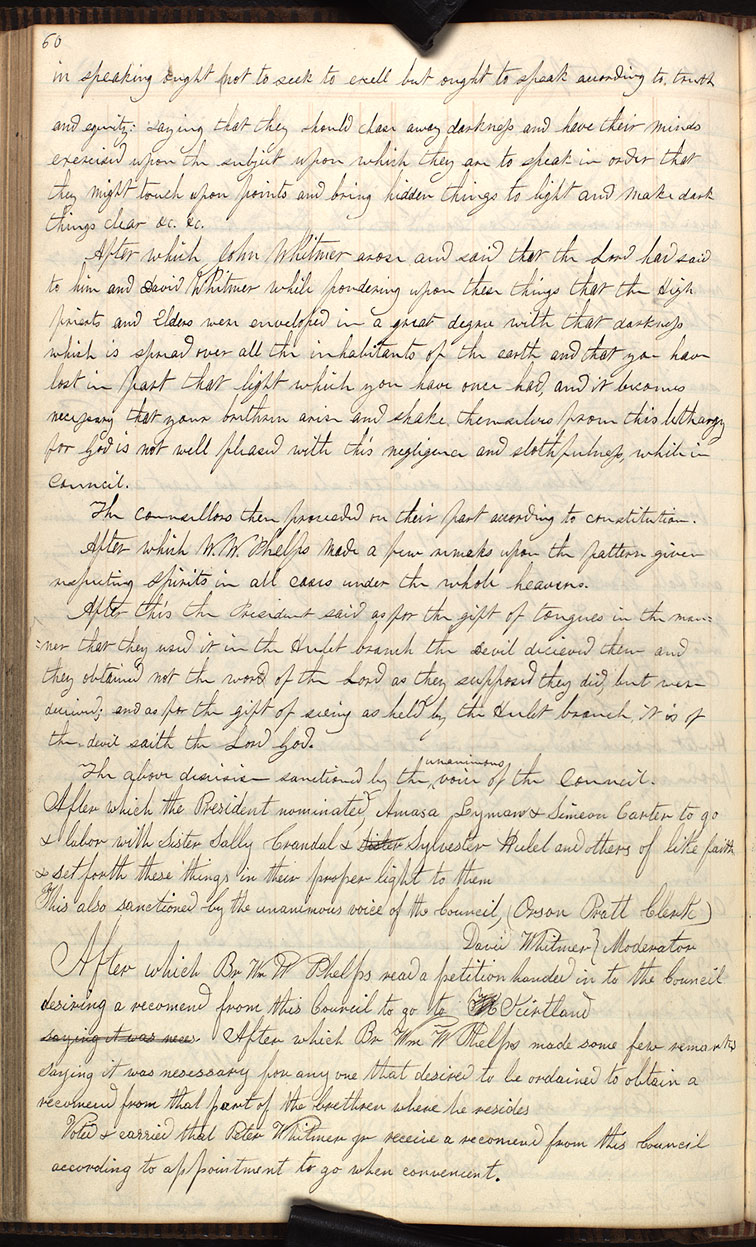 60
in speaking ought not to seek to excell but ought to speak according to truth
and equity: saying that they should chase away darkness and have their minds
exercised upon the subject upon which they are to speak in order that
they might touch upon points and bring hidden things to light and make dark
things clear &c. &c.
After which John Whitmer arose and said that the Lord had said
to him and David Whitmer while pondering upon these things that the High
priests and Elders were enveloped in a great degree with that darkness
which is spread over all the inhabitants of the earth and that you have
lost in part that light which you have once had, and it becomes
necessary that your brethren arise and shake themselves from this lethargy
for God is not well pleased with this negligence and slothfulness, while in
council.
The counsellors then proceeded on their part according to constitution.
After which W. W. Phelps made a few remaks upon the pattern given
respecting spirits in all cases under the whole heavens.
After this the President said as for the gift of tongues in the man=
=ner that they used it in the Hulet branch the Devil dicieved them and
they obtained not the word of the Lord as they supposed they did, but were
decieved; and as for the gift of seeing as held by the Hulet branch, it is of
the devil saith the Lord God.
The above decision sanctioned by the unanimous voice of the Council.
After which the President nominated Amasa Lyman & Simeon Carter to go
& labor with Sister Sally Crandal & sister Sylvester Hulet and others of like faith
& set forth these things in their proper light to them
This also sanctioned by the unanimous voice of the Council, (Orson Pratt Clerk)
David Whitmer} Moderator
After which Br Wm W Phelps read a petition handed in to the Council
desiring a recomend from this Council to go to Kirtland
saying it was neces. After which Br Wm W Phelps made some few remarks
saying it was necessary for any one that desired to be ordained to obtain a
recomend from that part of the brethren where he resides
Voted & carried that Peter Whitmer jr receive a recomend from this Council
according to appointment to go when convenient.